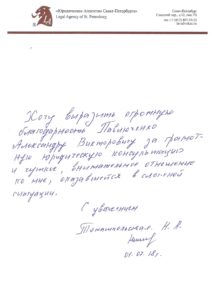 «Юридическое Агентство Санкт-Петербурга»
Legal Agency of St. Petersburg
Санкт-Петербург
Хочу выразить огромную
благодарность Павлюченко
Александру Викторовичу за грамот-
ную юридическую консультацию
и чуткое, внимательное отношение
ко мне, оказавшейся в сложной
ситуации.
С уважением
Н. А.
01.02.18г.